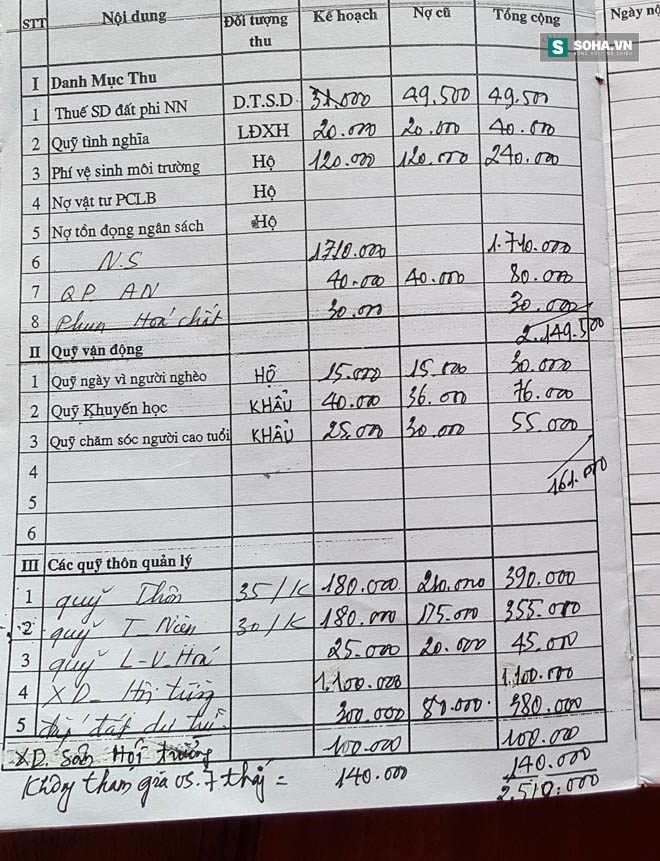 SOHA.VN
STT Nội dung Đối tượng thu Kế hoạch Nợ cũ Tổng cộng Ngày nộ
I Danh Mục Thu
1 Thuế SD đất phi NN D.T.S.D 31.000 49.500 49.500
2 Quỹ tình nghĩa LĐXH 20.000 20.000 40.000
3 Phí vệ sinh môi trường Hộ 120.000 120.000 240.000
4 Nợ vật tư PCLB Hộ
5 Nợ tồn đọng ngân sách Hộ
6 N.S 1710.000 1.710.000
7 QP. AN 40.000 40.000 80.000
8 Phun Hoá chất 30.000 30.000
2.149.500
II Quỹ vận động
1 Quỹ ngày vì người nghèo HỘ 15.000 15.000 30.000
2 Quỹ Khuyến học KHẨU 40.000 36.000 76.000
3 Quỹ chăm sóc người cao tuổi KHẨU 25.000 30.000 55.000
4
161.000
5
6
III Các quỹ thôn quản lý
1 quỹ Thôn 35/K 180.000 210.000 390.000
2 quỹ T_Niên 30/K 180.000 175.000 355.000
3 quỹ L-V.Hoá 25.000 20.000 45.000
4 XD_ Hội 1.100.000 1.100.000
5 đất dự trữ 300.000 80.000 380.000
XD. Sân Hội trường 100.000 100.000
Không tham gia 05.7 = 140.000 140.000
2.510.000